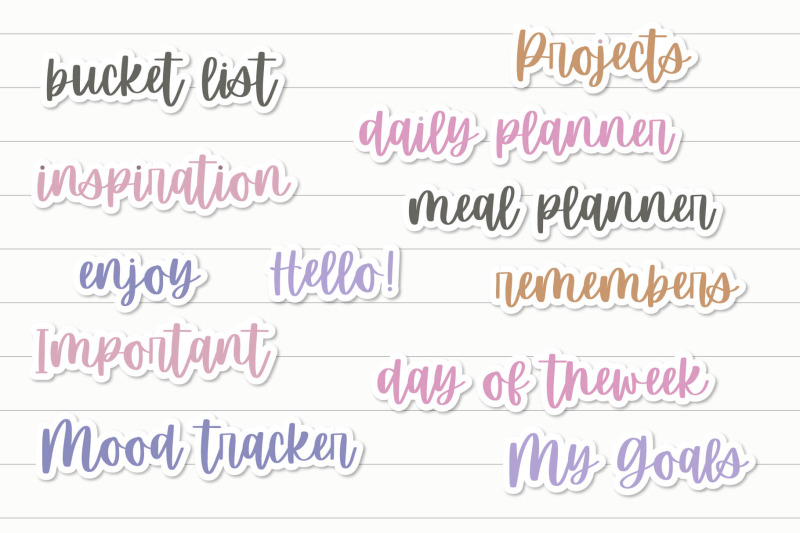 bucket list
Projects
daily planner
inspiration
meal planner
enjoy
Hello!
remembers
Important
day of theweek
Mood tracker
My Goals